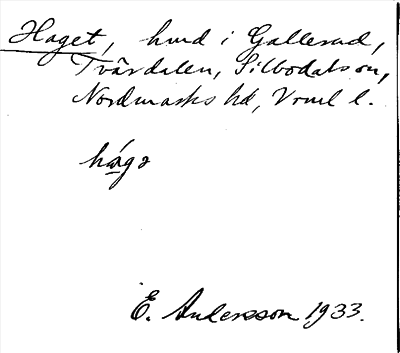 Haget, hmd i Gallerud,
Tvärdalen, Silbodals sn,
Nordmarks hd, Vrml l.
hága
E. Andersson 1933.